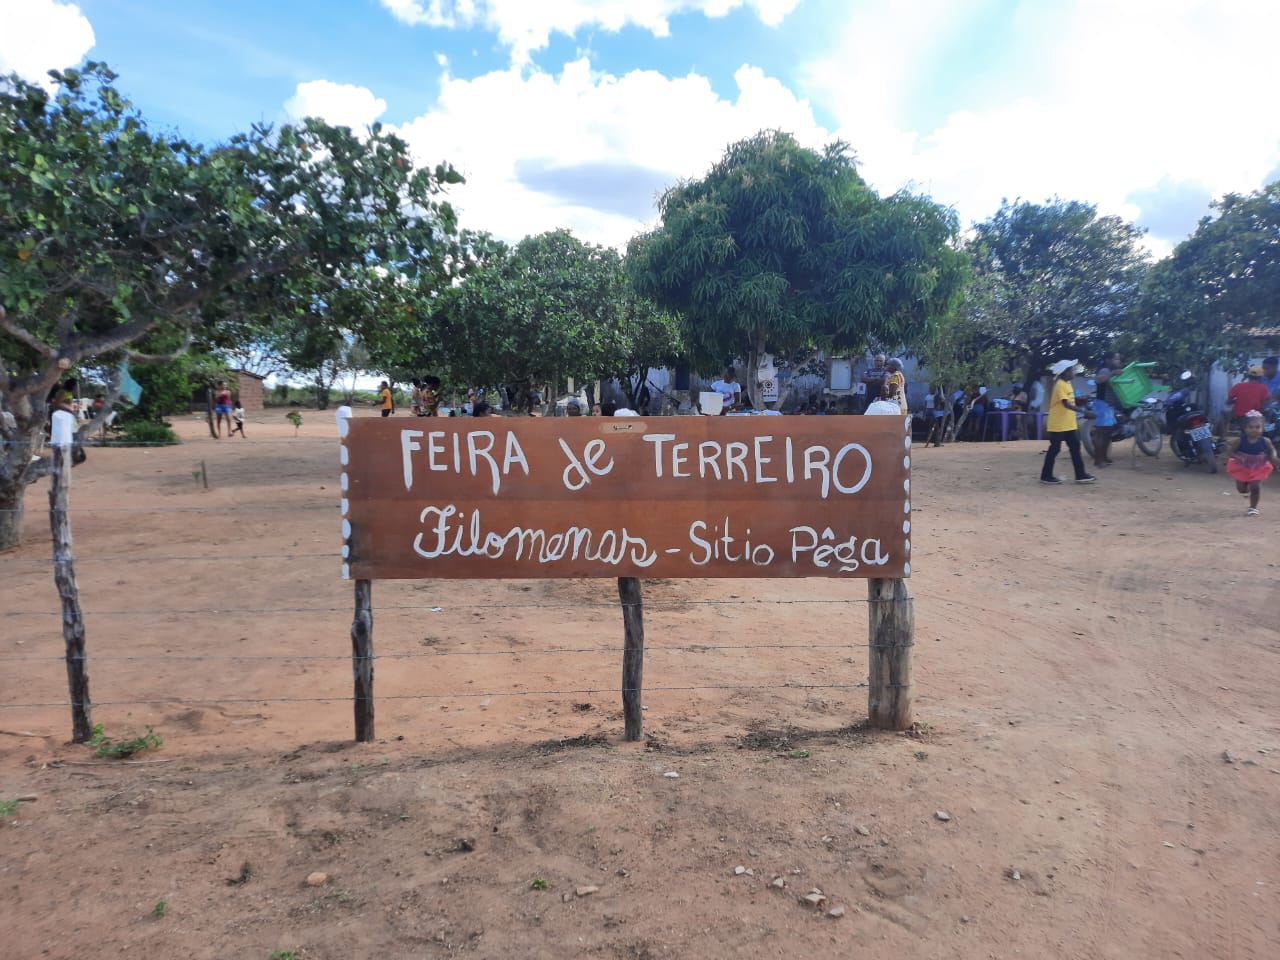 FEIRA de TERREIRO
Filomenas - Sitio Pêga